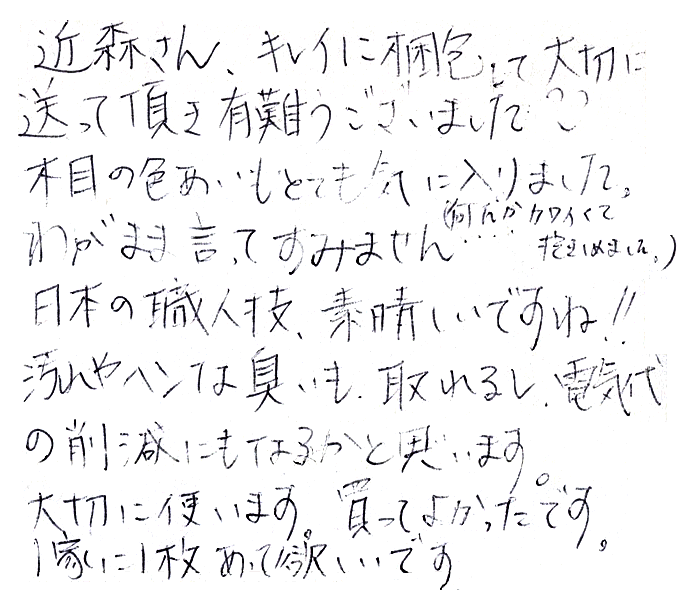 近森さん、キレイに梱包して大切に
送って頂き有難うございました
木目の色あいもとても気に入りました。
わがまま言ってすみません‥‥(何だかカワイくて
抱きしめました。)
日本の職人技、素晴しいですね!!
汚れやヘンな臭いも、取れるし、電気代
の削減にもなるかと思います。
大切に使います。買ってよかったです。
1家に1枚あって欲しいです